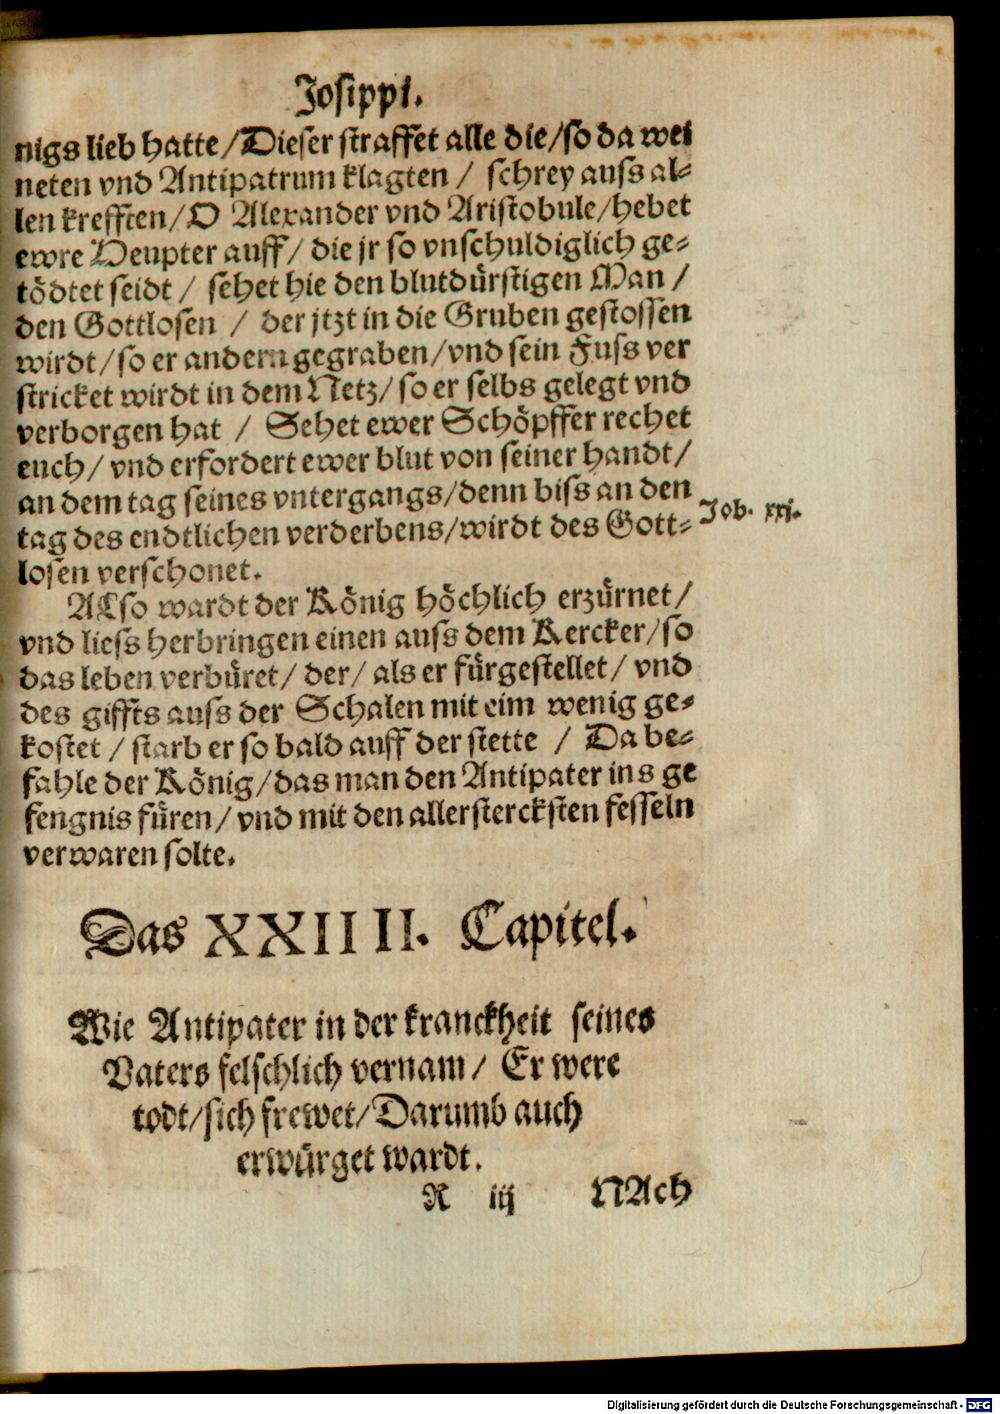 Josippi.
nigs lieb hatte/Dieser straffet alle die/so da wei
neten vnd Antipatrum klagten / schrey auss al⸗
len krefften/O Alexander vnd Aristobule/hebet
ewre Heupter auff/ die jr so vnschuldiglich ge⸗
tödtet seidt / sehet hie den blutdürstigen Man /
den Gottlosen / der jtzt in die Gruben gestossen
wirdt/so er andern gegraben/vnd sein Fuss ver
stricket wirdt in dem Netz/so er selbs gelegt vnd
verborgen hat / Sehet ewer Schöpffer rechet
euch/ vnd erfordert ewer blut von seiner handt/
an dem tag seines vntergangs/denn biss an den
tag des endtlichen verderbens/wirdt des Gott⸗
Job. xxj.
losen verschonet.
ALso wardt der König höchlich erzürnet/
vnd liess herbringen einen auss dem Kercker/so
das leben verbüret/ der/ als er fürgestellet/ vnd
des giffts auss der Schalen mit eim wenig ge⸗
kostet / starb er so bald auff der stette / Da be⸗
fahle der König/das man den Antipater ins ge
fengnis füren/ vnd mit den allerstercksten fesseln
verwaren solte.
Das XXIIII II. Capitel.
Wie Antipater in der kranckheit seines
Vaters felschlich vernam/ Er were
todt/sich frewet/Darumb auch
erwürget wardt.
R iij NAch
Digitalisierung gefördert durch die Deutsche Forschungsgemeinschaft - DFG